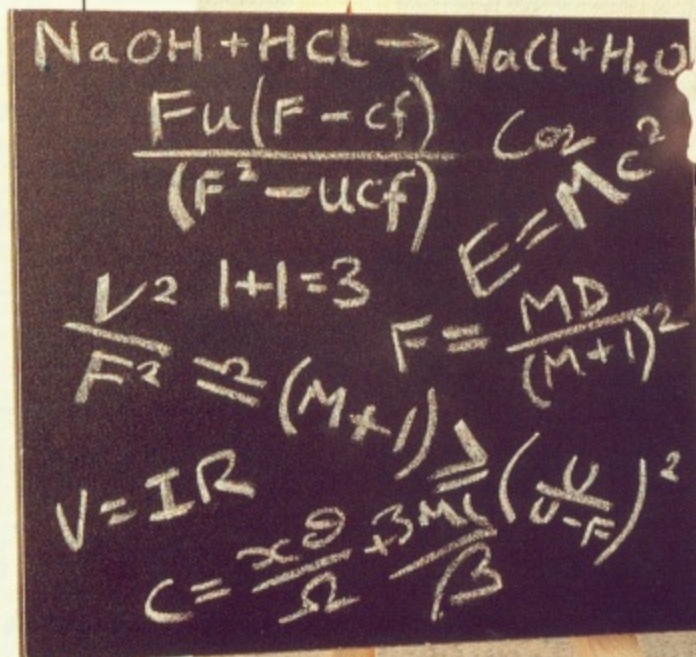 NaOH + HCl → NaCl + H₂O
Fu(F - cf)
(F² - ucf)
Co₂
E = Mc²
V²
F²
1+1=3
F = MD
(M+1)²
(M+1) ≥ (U
U-F)²
V = IR
C = xθ
Ω
+ 3Mc
β